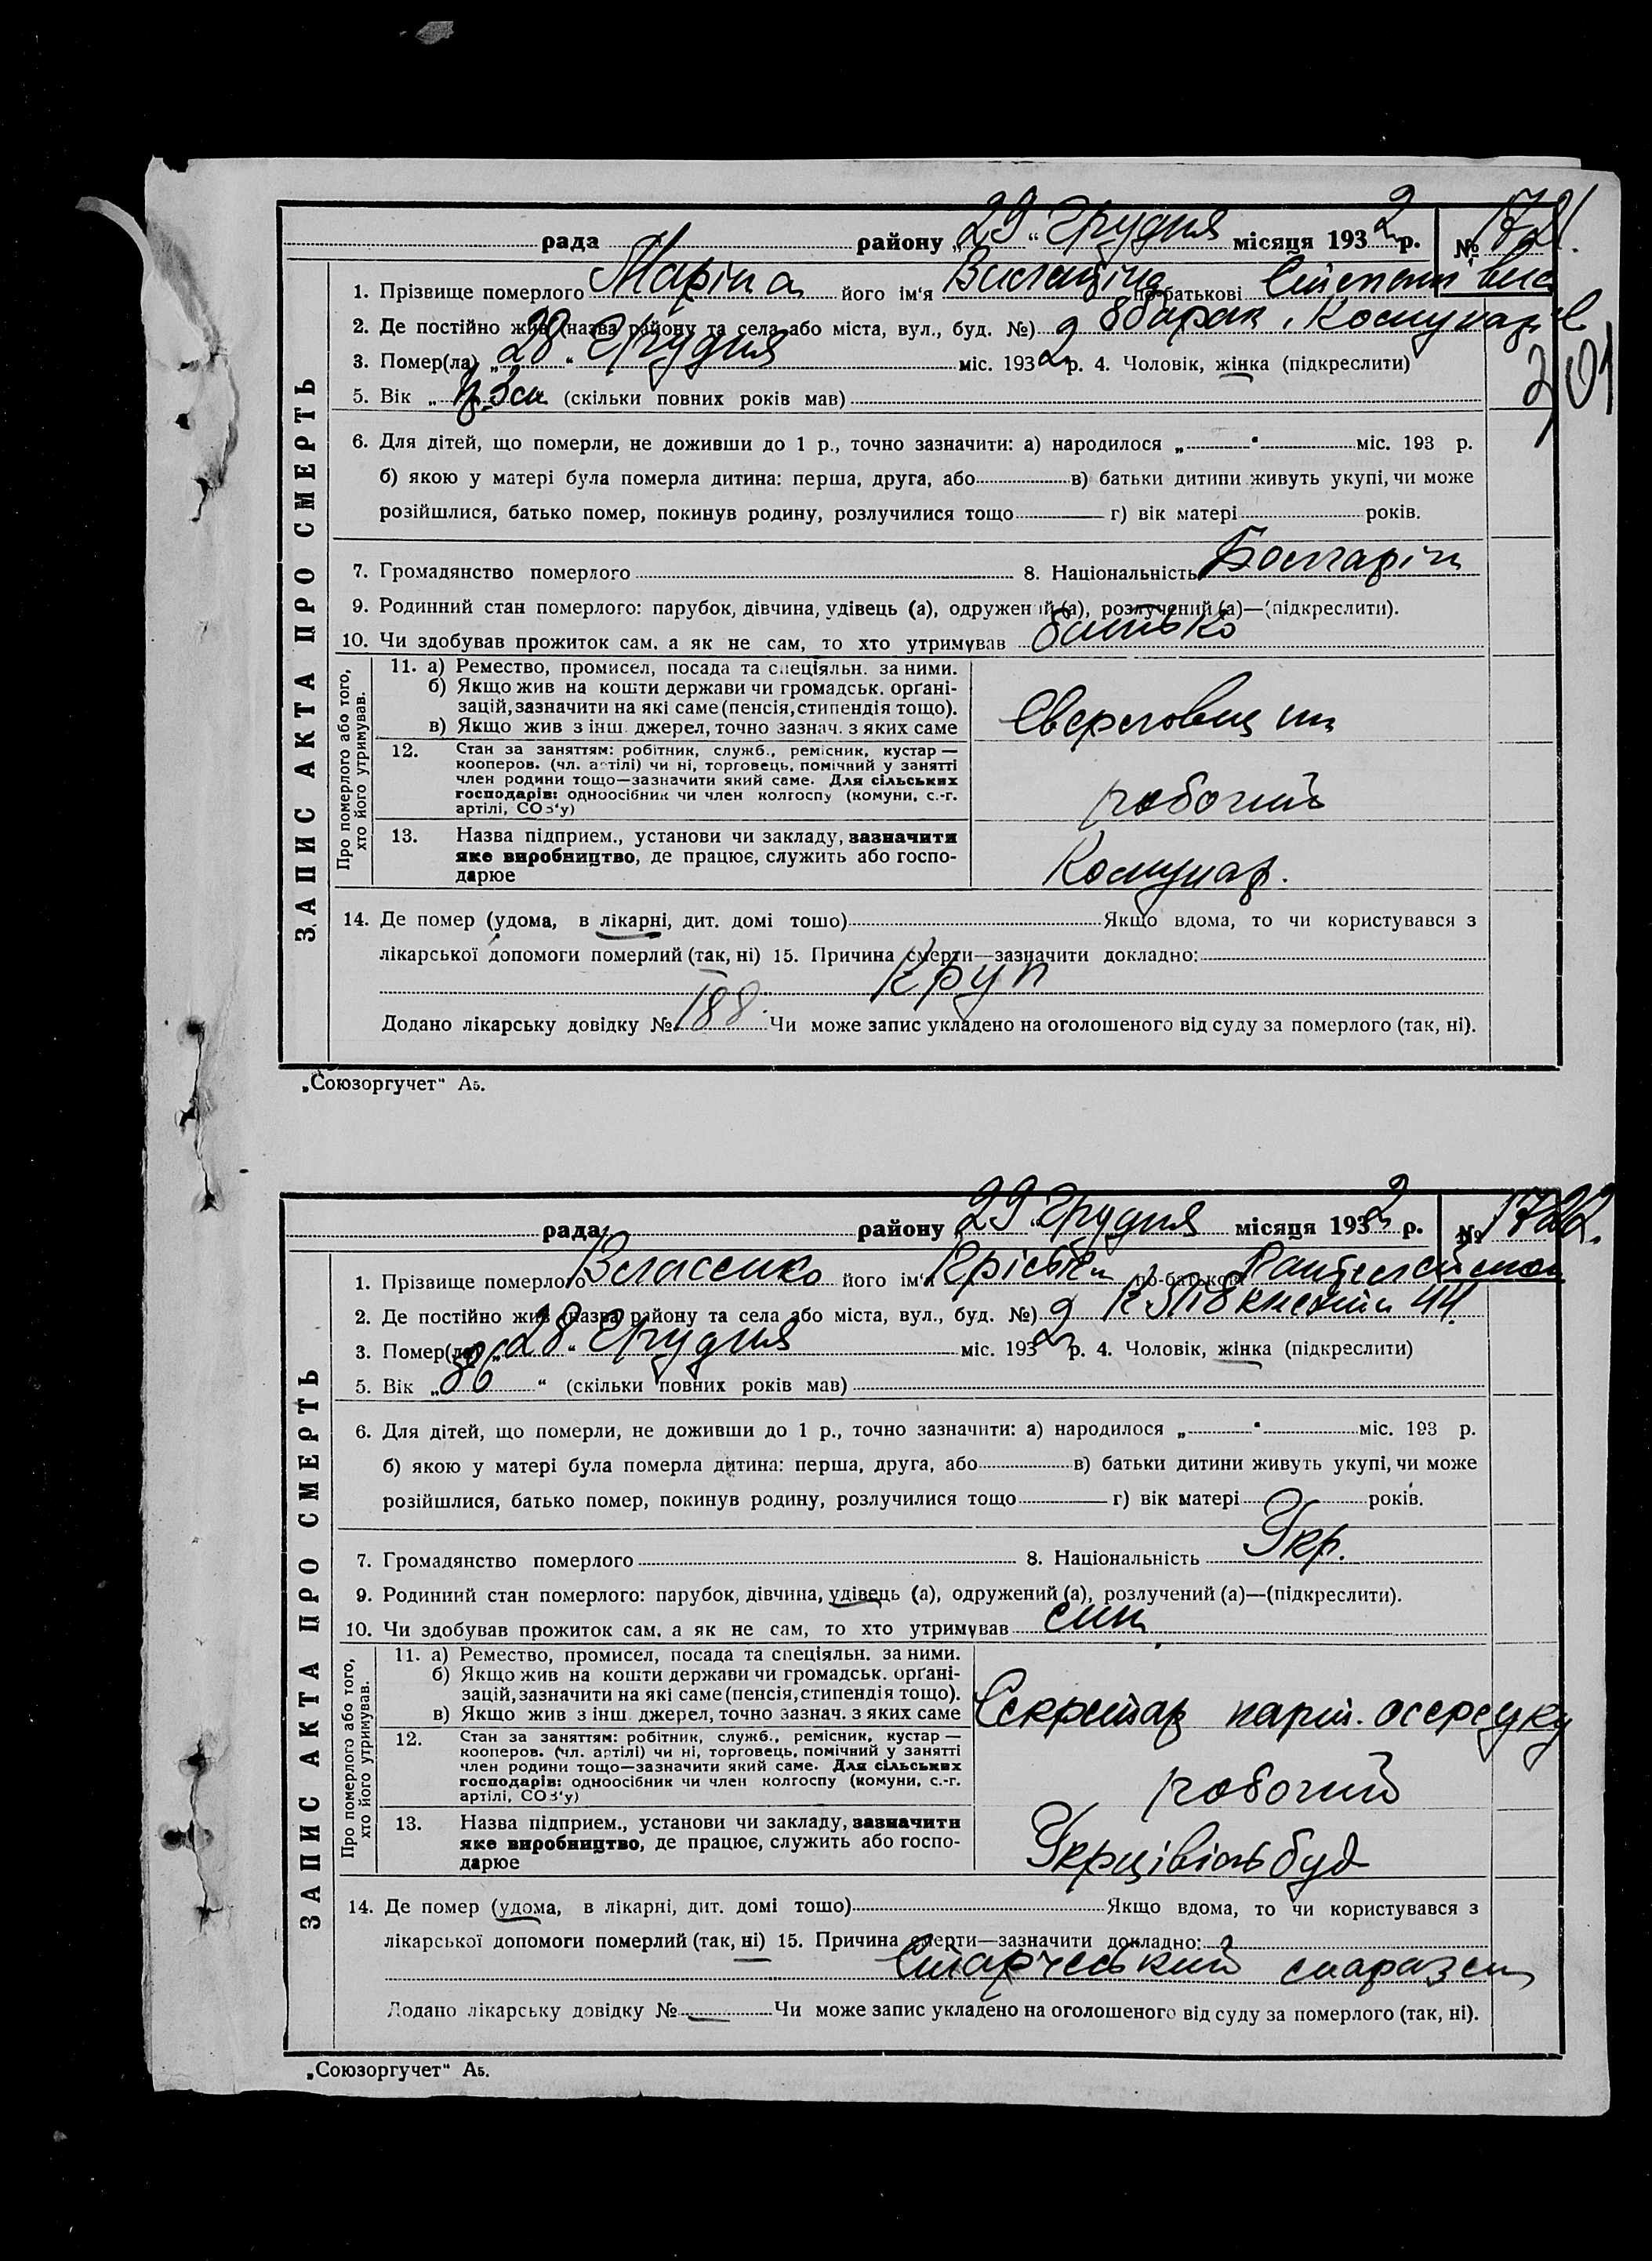 рада району „29“ Грудня місяця 1932 р. № 1721.
1. Прізвище померлого Маріна його ім'я по-батькові
2. Де постійно жив (назва району та села або міста, вул., буд. №) 8 барак, Комунар
3. Помер(ла) „28“ Грудня міс. 1932 р. 4. Чоловік, жінка (підкреслити)
301
5. Вік „ (скільки повних років мав)
6. Для дітей, що померли, не доживши до 1 р., точно зазначити: а) народилося „ “ міс. 193 р.
б) якою у матері була померла дитина: перша, друга, або в) батьки дитини живуть укупі, чи може
розійшлися, батько помер, покинув родину, розлучилися тощо г) вік матері років.
7. Громадянство померлого 8. Національність Болгарін
9. Родинний стан померлого: парубок, дівчина, удівець (а), одружений (а), розлучений (а)—(підкреслити).
10. Чи здобував прожиток сам, а як не сам, то хто утримував батько
Про померлого або того, хто його утримував.
11. а) Ремество, промисел, посада та спеціяльн. за ними.
б) Якщо жив на кошти держави чи громадськ. орґані-
зацій, зазначити на які саме (пенсія, стипендія тощо).
в) Якщо жив з інш. джерел, точно зазнач. з яких саме
Сверловщик
12. Стан за заняттям: робітник, служб., ремісник, кустар —
кооперов. (чл. артілі) чи ні, торговець, помічний у занятті
член родини тощо—зазначити який саме. Для сільських
господарів: одноосібник чи член колгоспу (комуни, с.-г.
артілі, СОЗ'у)
робочий
13. Назва підприєм., установи чи закладу, зазначити
яке виробництво, де працює, служить або госпо-
дарює
Комунар.
14. Де помер (удома, в лікарні, дит. домі тощо) Якщо вдома, то чи користувався з
лікарської допомоги померлий (так, ні) 15. Причина смерти—зазначити докладно:
Круп
Додано лікарську довідку № 188. Чи може запис укладено на оголошеного від суду за померлого (так, ні).
ЗАПИС АКТА ПРО СМЕРТЬ
„Союзоргучет“ А5.
рада району „29“ Грудня місяця 1932 р. № 1722.
1. Прізвище померлого Власенко його ім'я по-батькові
2. Де постійно жив (назва району та села або міста, вул., буд. №) 44.
3. Помер(ла) „28“ Грудня міс. 1932 р. 4. Чоловік, жінка (підкреслити)
5. Вік „86“ (скільки повних років мав)
6. Для дітей, що померли, не доживши до 1 р., точно зазначити: а) народилося „ “ міс. 193 р.
б) якою у матері була померла дитина: перша, друга, або в) батьки дитини живуть укупі, чи може
розійшлися, батько помер, покинув родину, розлучилися тощо г) вік матері років.
7. Громадянство померлого 8. Національність Укр.
9. Родинний стан померлого: парубок, дівчина, удівець (а), одружений (а), розлучений (а)—(підкреслити).
10. Чи здобував прожиток сам, а як не сам, то хто утримував син
Про померлого або того, хто його утримував.
11. а) Ремество, промисел, посада та спеціяльн. за ними.
б) Якщо жив на кошти держави чи громадськ. орґані-
зацій, зазначити на які саме (пенсія, стипендія тощо).
в) Якщо жив з інш. джерел, точно зазнач. з яких саме
Секретар парт. осередку
12. Стан за заняттям: робітник, служб., ремісник, кустар —
кооперов. (чл. артілі) чи ні, торговець, помічний у занятті
член родини тощо—зазначити який саме. Для сільських
господарів: одноосібник чи член колгоспу (комуни, с.-г.
артілі, СОЗ'у)
робочий
13. Назва підприєм., установи чи закладу, зазначити
яке виробництво, де працює, служить або госпо-
дарює
Укрцівільбуд
14. Де помер (удома, в лікарні, дит. домі тощо) Якщо вдома, то чи користувався з
лікарської допомоги померлий (так, ні) 15. Причина смерти—зазначити докладно:
Старческий маразм
Додано лікарську довідку № Чи може запис укладено на оголошеного від суду за померлого (так, ні).
ЗАПИС АКТА ПРО СМЕРТЬ
„Союзоргучет“ А5.